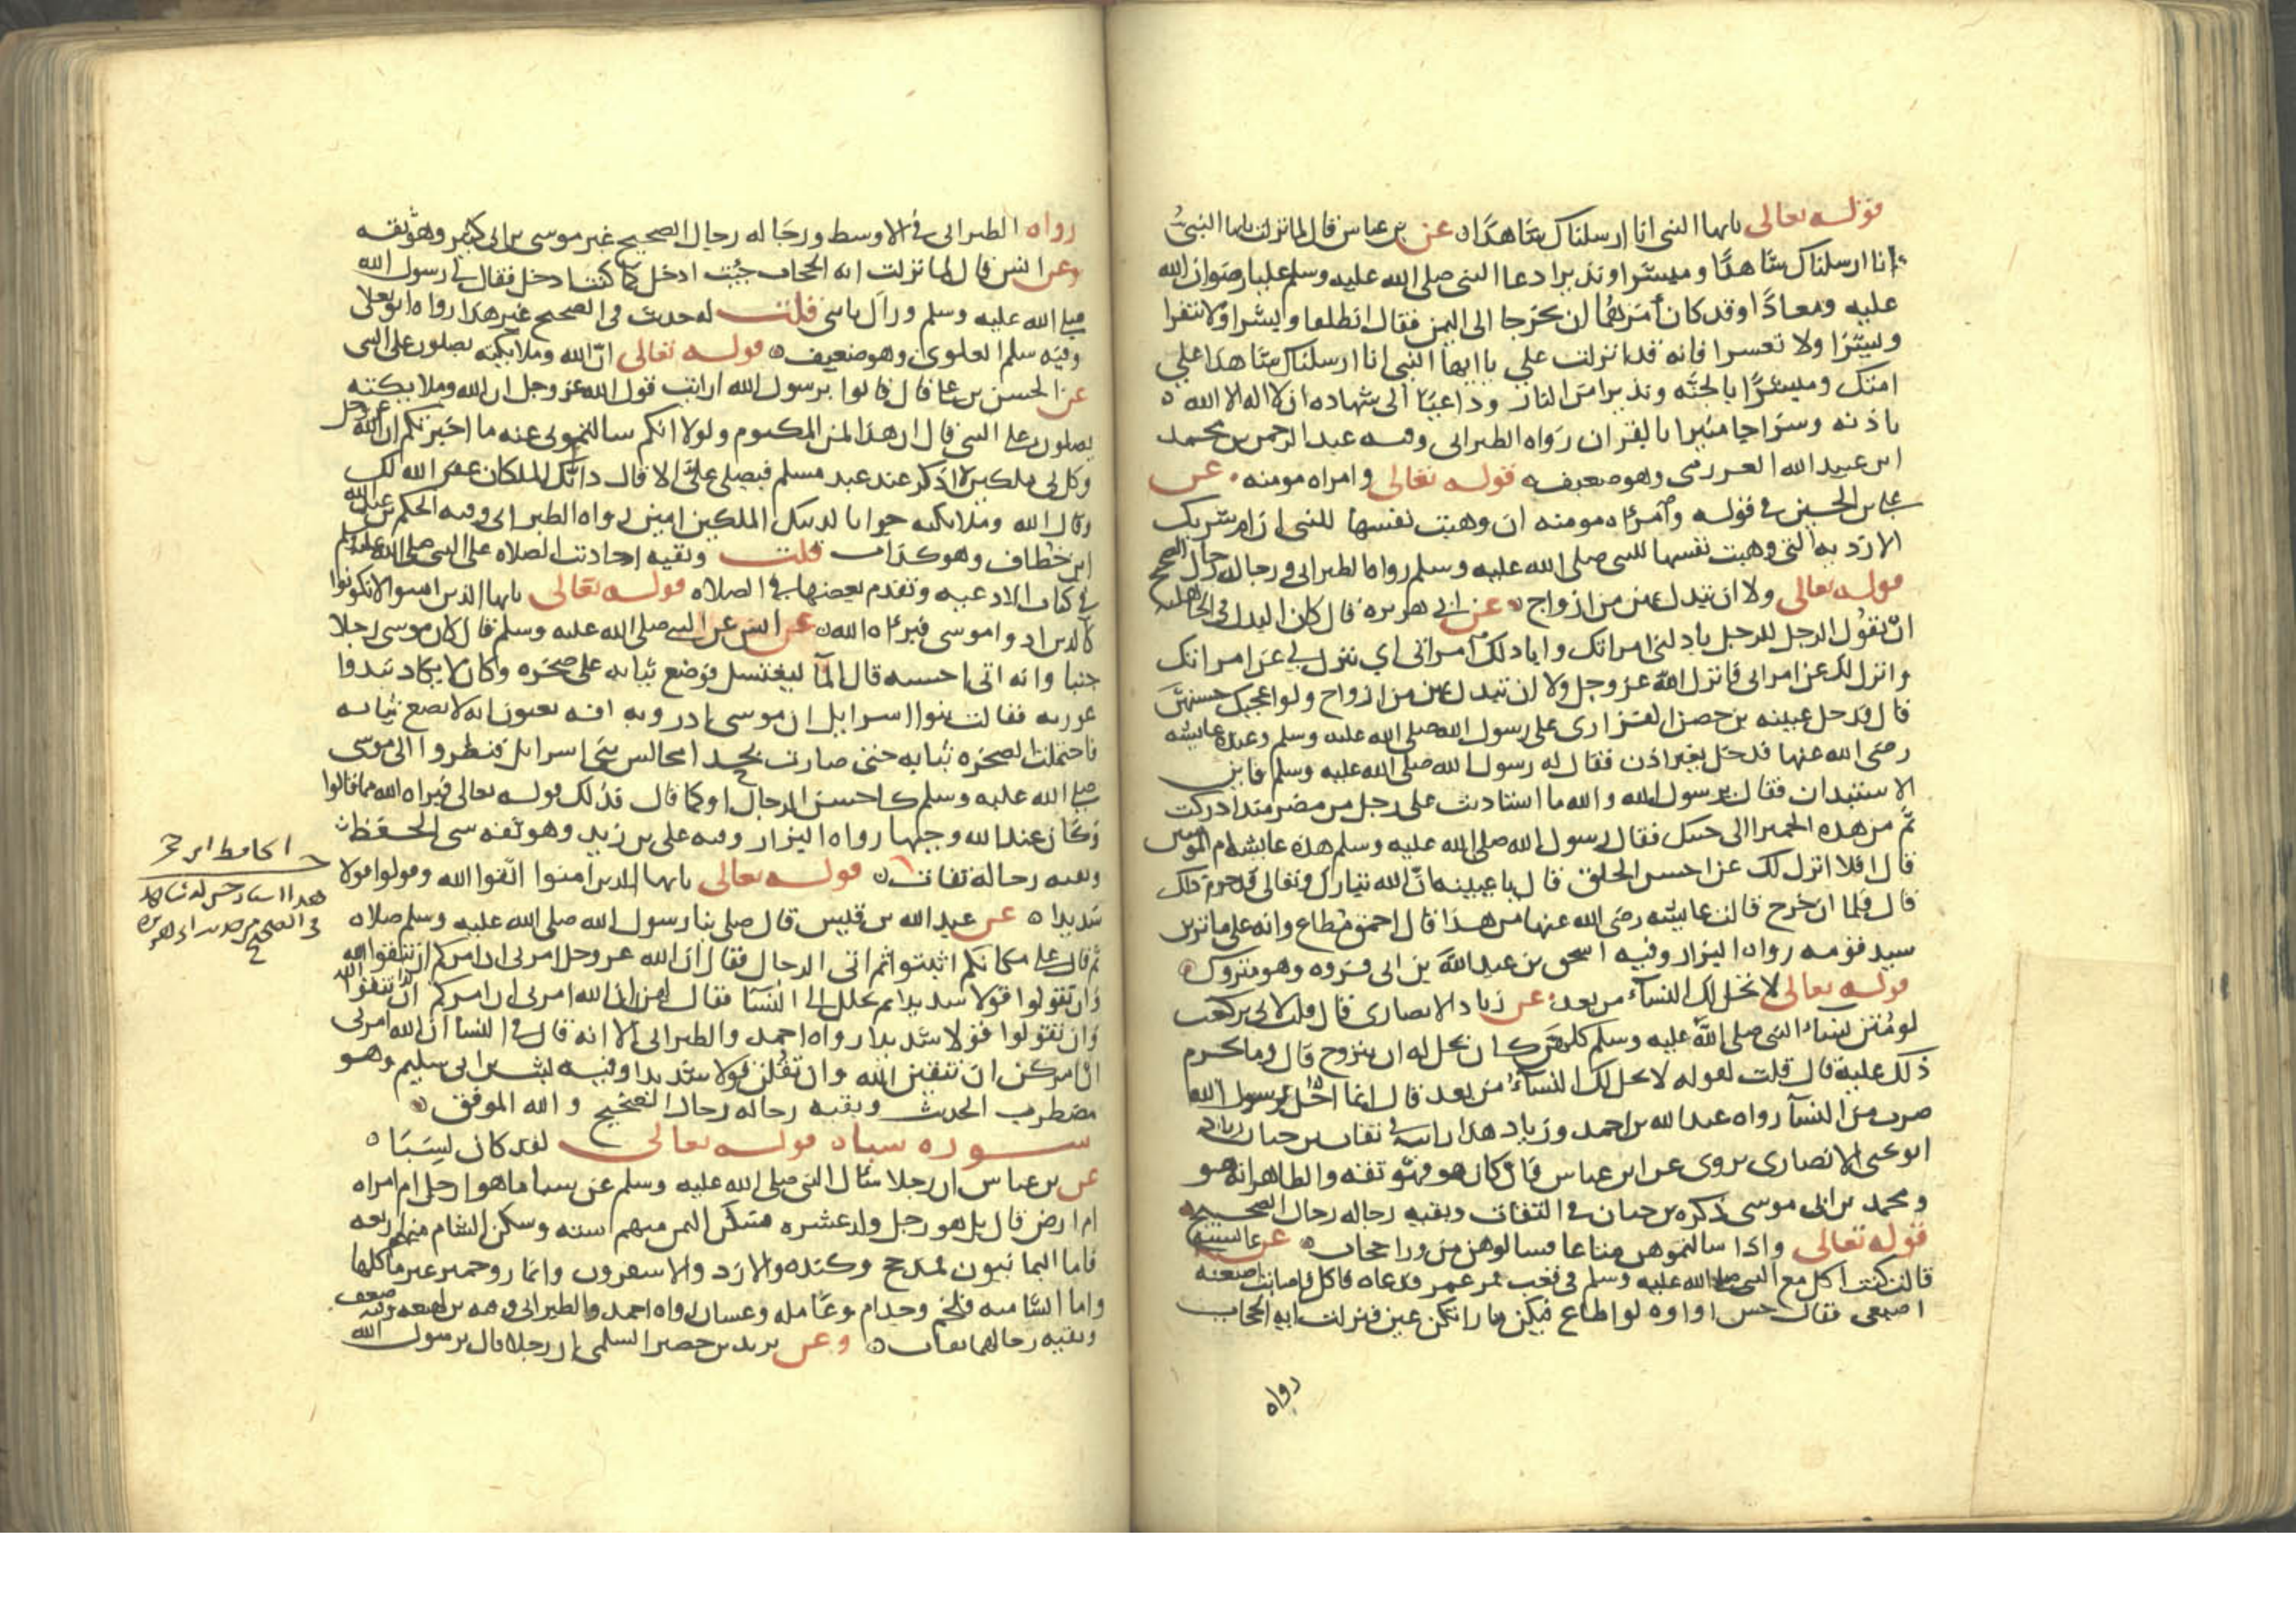 قوله تعالى يايها النبي انا ارسلناك شاهدًا ٥ عن بن عباس قال لما نزلت يايها النبيُ
انا ارسلناك شاهدًا ومبشرا ونذيرا دعا النبي صلى الله عليه وسلم عليا رضوان الله
عليه ومعاذًا وقد كان أمَرَهُما ان يخرجا الى اليمن فقال انطلقا وابشرا ولا تنفرا
ويسّرَا ولا تعسرا فانه قد انزلت علي يا ايها النبي انا ارسلناك شاهدا علي
امتك ومبشرًا بالجنَّه ونذيرا من النار وداعيًا الى شهاده ان لا اله الا الله ٥
باذنه وسرَاجا منيرا بالقران رَواه الطبرانى وفيه عبد الرحمن بن محمد
ابن عبيد الله العررمى وهو ضعيف ٥ قوله تعالى وامراه مومنه . عن
على بن الحسين في قوله وامرَاه مومنه ان وهبت نفسها للنبي ان ام شريك
الازديه التي وهبت نفسها للنبي صلى الله عليه وسلم رواه الطبرانى ورجاله رجال الصحيح
قوله تعالى ولا ان تبدل بهن من ازواج ٥ عن ابي هريره قال كان البدل في الجاهليه
ان يقول الرجل للرجل بادلني امراتك وابادلك امراتي اي تنزل لي عن امراتك
وانزل لك عن امراتي فانزل الله عز وجل ولا ان تبدل بهن من ازواج ولو اعجبك حسنهنّ
قال فدخل عيينه بن حصن الفزارى على رسول الله صلى الله عليه وسلم وعنده عايشه
رضى الله عنها فدخل بغير اذن فقال له رسول الله صلى الله عليه وسلم فاين
الاستئذان فقال يرسول الله والله ما استاذنت على رجل من مضر منذ ادركت
ثم من هذه الحميرا الى جنبك فقال رسول الله صلى الله عليه وسلم هذه عايشه ام المومنين
قال افلا انزل لك عن احسن الخلق قال يا عيينه انّ الله تبارك وتعالى قد حرم ذلك
قال فلما ان خرج قالت عايشه رضى الله عنها من هذا قال احمق مُطاع وانه على ما ترين
سيد قومه رواه البزار وفيه اسحق بن عبد الله بن ابى فروه وهو متروك ٥
قوله تعالى لا تحل لك النساء من بعد . عن زياد الانصارى قال قلت لابى بن كعب
لو مُتن نساء النبي صلى الله عليه وسلم كلهن كان يحل له ان يتزوج قال وما يحرم
ذلك عليه قال قلت لقوله لا يحل لك النساء من بعد قال انما احل لرسول الله
ضرب من النسآ رواه عبد الله بن احمد وزياد هذا رايته في ثقات بن حبان زياد
ابو يحيى الانصارى يروى عن ابن عباس فان كان هو فهو ثقه والظاهر انه هو
ومحمد بن ابى موسى ذكره بن حبان في الثقات وبقيه رجاله رجال الصحيح ٥
قوله تعالى واذا سالتموهن متاعا فسالوهن من ورا حجاب ٥ عن عايشه
قالت كنت اكل مع النبي صلى الله عليه وسلم في قعب فمر عمر فدعاه فاكل فاصابت اصبعه
اصبعى فقال حس او اوه لو اطاع فيكن ما راتكن عين فنزلت ايه الحجاب
رواه
رواه الطبرانى في الاوسط ورجَاله رجال الصحيح غير موسى بن ابى كثير وهو ثقه
وعن انس قال لما نزلت ايه الحجاب جيت ادخل كما كنت ادخل فقال لي رسول الله
صلى الله عليه وسلم ورآك يا بني قلت له حديث في الصحيح غير هذا رواه ابو يعلى
وفيه سلم العلوى وهو ضعيف ٥ قوله تعالى انّ الله وملايكته يصلون على النبي
عن الحسن بن علي قال قالوا يرسول الله ارايت قول الله عز وجل ان الله وملايكته
يصلون على النبي قال ان هذا لمن المكتوم ولولا انكم سالتموني عنه ما اخبرتكم ان الله عز وجل
وكل بي ملكين لا اذكر عند عبد مسلم فيصلي عليّ الا قال ذانك الملكان غفر الله لك
وقال الله وملايكته جوابا لذينك الملكين امين رواه الطبرانى وفيه الحكم بن عبد الله
ابن خطاف وهو كذاب قلت وبقيه احاديث الصلاه على النبي صلى الله عليه وسلم
في كتاب الادعيه وتقدم بعضها في الصلاه قوله تعالى يايها الذين امنوا لا تكونوا
كالذين اذوا موسى فبرَاه الله ٥ عن انس عن النبي صلى الله عليه وسلم قال كان موسى رجلا
حييا وانه اتى احسبه قال المآ ليغتسل فوضع ثيابه على صخره وكان لا يكاد تبدوا
عورته فقالت بنوا اسرايل ان موسى ادر وبه افه يعنون انه لا يضع ثيابه
فاحتملت الصخره ثيابه حتى صارت بحذا مجالس بني اسرايل فنظروا الى موسى
صلى الله عليه وسلم كاحسن الرجال او كما قال فذلك قوله تعالى فبراه الله مما قالوا
وكان عند الله وجيها رواه البزار وفيه على بن زيد وهو ثقه سي الحفظ
وبقيه رجاله ثقات ٥ قوله تعالى يايها الذين امنوا اتقوا الله وقولوا قولا
سَديدا ٥ عن عبد الله بن قيس قال صلى بنا رسول الله صلى الله عليه وسلم صلاه
ثم قال على مكانكم اثبتوا ثم اتى الرجال فقال ان الله عز وجل امرني ان امركم ان تتقوا الله
وان تقولوا قولا سديدا ثم تخلل الى النسا فقال لهن ان الله امرني ان امركم ان تتقوا الله
وان تقولوا قولا سديدا رواه احمد والطبرانى الا انه قال في النسا ان الله امرني
ان امركن ان تتقين الله وان تقلن قولا سديدا وفيه ليث بن ابى سليم وهو
مضطرب الحديث وبقيه رجاله رجال الصحيح والله الموفق ٥
سوره سبا ٥ قوله تعالى لقد كان لسَبَا ٥
عن بن عباس ان رجلا سال النبي صلى الله عليه وسلم عن سبا ما هو ارجل ام امراه
ام ارض قال بل هو رجل ولد عشره فسكن اليمن منهم سته وسكن الشام منهم اربعه
فاما اليمانيون فمذحج وكنده والازد والاسعرون وانمار وحمير عير ما كلها
واما الشاميه فلخم وجذام وعَامله وغسان رواه احمد والطبرانى وفيه بن لهيعه وفيه ضعف
وبقيه رجالهما ثقات ٥ وعن يزيد بن حصين السلمى ان رجلا قال يرسول الله
الحافظ ابن حجر
هذا اسناد حسن له شاهد
في الصحيح من حديث ابى هريره